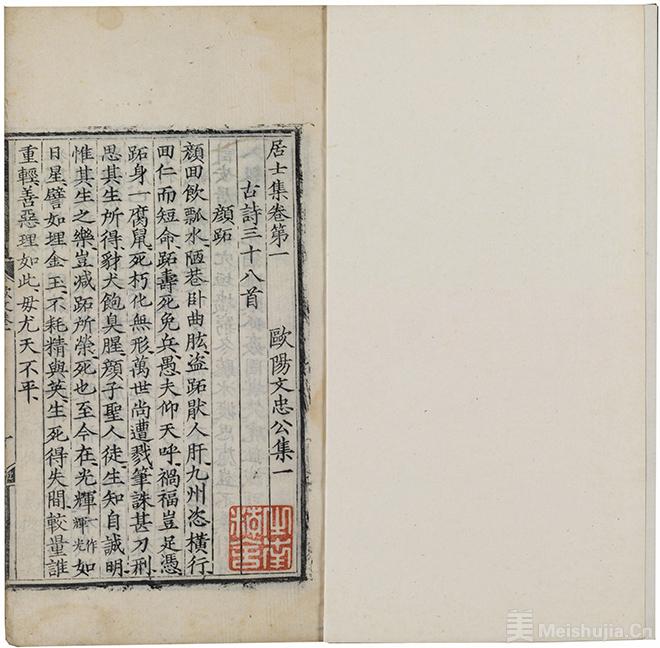 居士集卷第一 歐陽文忠公集一
古詩三十八首
顔跖
顔回飲瓢水陋巷卧曲肱盗跖猒人肝九州恣橫行
回仁而短命跖壽死免兵愚夫仰天呼禍福豈足憑
跖身一腐鼠死朽化無形萬世尚遭戮筆誅甚刀刑
思其生所得豺犬飽臭腥顔子聖人徒生知自誠明
惟其生之樂豈減跖所榮死也至今在光輝一作輝光如
日星譬如埋金玉不耗精與英生死得失間較量誰
重輕善惡理如此毋尤天不平
美 Meishujia.Cn